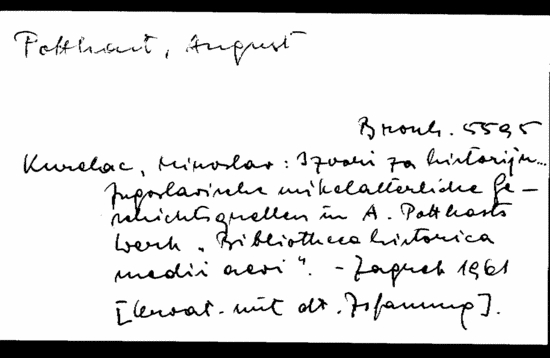 Potthast, August
Brosch. 5595
Kurelac, Miroslav: Izvori za historiju...
Jugoslavische mittelalterliche Ge-
schichtsquellen in A. Potthasts
Werk „Bibliotheca historica
medii aevi“. - Zagreb 1961
[Kroat. mit dt. Zsfassung].